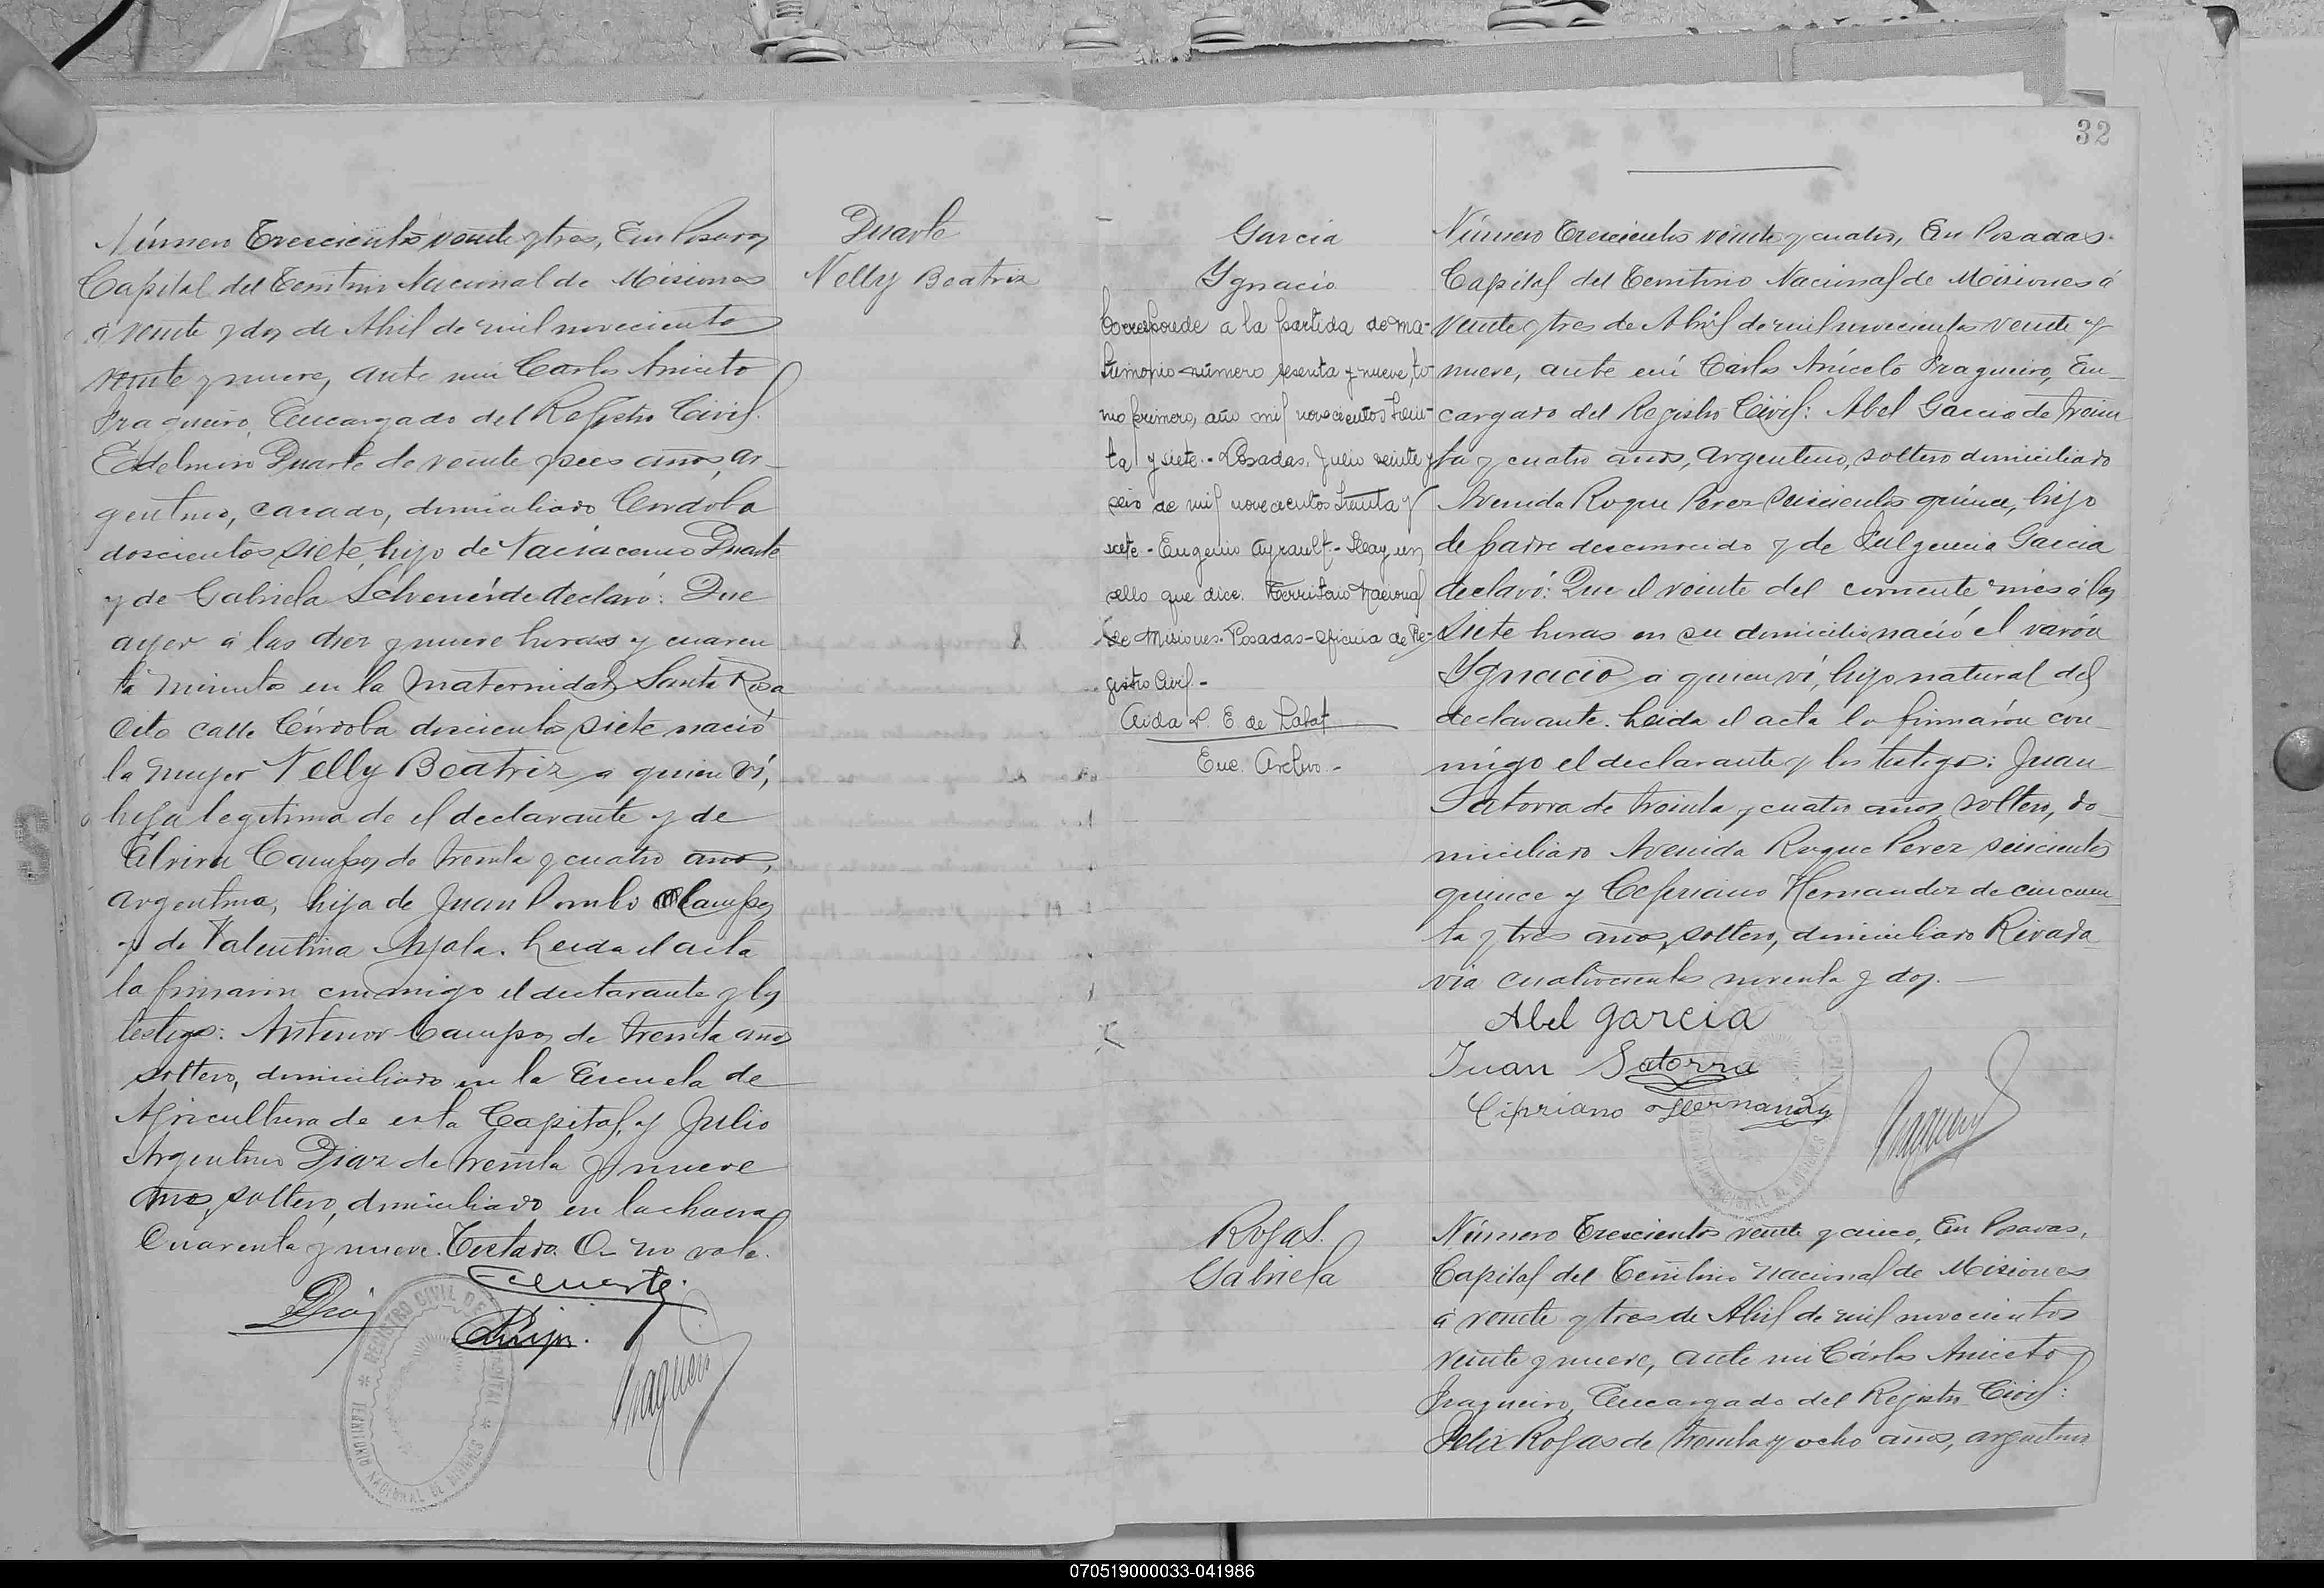 Número Trescientos veinte y tres, En Posadas,
Capital del Territorio Nacional de Misiones
a veinte y dos de Abril de mil novecientos
veinte y nueve, ante mi Carlos Aniceto
Fragueiro, Encargado del Registro Civil.
Edelmiro Duarte de veinte y seis años, ar-
gentino, casado, domiciliado Cordoba
doscientos siete, hijo de Duarte
y de Gabriela declaró: Que
ayer a las diez y nueve horas y cuaren
ta minutos en la Maternidad Santa Rosa
cito calle Córdoba doscientos siete nació
la mujer Nelly Beatriz a quien ví,
hija legitima de el declarante y de
Elvira Campos de treinta y cuatro años,
argentina, hija de Juan Pombo Campos
y de Valentina Ayala. Leida el acta
la firmaron conmigo el declarante y los
testigos: Antenor Campos de treinta años
soltero, domiciliado en la Escuela de
Agricultura de esta Capital, y Julio
Argentino Diaz de treinta y nueve
años, soltero, domiciliado en la chacra
Cuarenta y nueve. Testado. O- no vale.
REGISTRO CIVIL DE LA CAPITAL
TERRITORIO NACIONAL DE MISIONES
Duarte
Nelly Beatriz
32
Garcia
Ygnacio
Corresponde a la partida de ma-
trimonio número sesenta y nueve, to-
mo primero, año mil novecientos trein-
ta y siete.- Posadas, Julio veinte y
seis de mil novecientos treinta y
siete - Eugenio Ayrault - Hay un
sello que dice. Territorio Nacional
de Misiones. Posadas - oficina de Re-
gistro Civil -
Aida E. de
Enc. Archivo.-
Número Trescientos veinte y cuatro, En Posadas.
Capital del Territorio Nacional de Misiones á
veinte y tres de Abril de mil novecientos veinte y
nueve, ante mí Cárlos Aníceto Fragueiro, En-
cargado del Registro Civil: Abel Garcia de trein
ta y cuatro años, argentino, soltero domiciliado
Avenida Roque Perez seiscientos quince, hijo
de padre desconocido y de Fulgencia Garcia
declaró: Que el veinte del corriente mes á las
siete horas en su domicilio nació el varón
Ygnacio a quien ví, hijo natural del
declarante. Leida el acta la firmarón con-
migo el declarante y los testigos: Juan
Satorra de treinta y cuatro años, soltero, do-
miciliado Avenida Roque Perez seiscientos
quince y Cipriano Hernandez de cincuen
ta y tres años, soltero, domiciliado Rivada
via cuatrocientos noventa y dos.-
Abel Garcia
Juan Satorra
Cipriano Hernandez
Fragueiro
Rojas.
Gabriela
Número Trescientos veinte y cinco, En Posadas,
Capital del Territorio Nacional de Misiones
á veinte y tres de Abril de mil novecientos
veinte y nueve, ante mi Cárlos Aniceto
Fragueiro, Encargado del Registro Civil:
Felix Rojas de treinta y ocho años, argentino
070519000033-041986